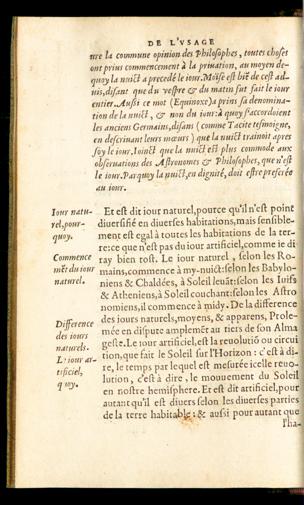 DE L'VSAGE
tre la commune opinion des Philosophes, toutes choses
ont prius commencement à la priuation, au moyen de-
quoy la nuict a precedé le iour. Moïse est biē de cest ad-
uis, disant que du vespre & du matin fut fait le iour
entier. Aussi ce mot (Equinoxe) a prins sa denomina-
tion de la nuict, & non du iour: à quoy s'accordoient
les anciens Germains, disans (comme Tacite tesmoigne,
en descriuant leurs mœurs) que la nuict trainoit apres
soy le iour. Ioinct que la nuict est plus commode aux
obseruations des Astronomes & Philosophes, que n'est
le iour. Parquoy la nuict, en dignité, doit estre preferée
au iour.
Iour natu-
rel, pour-
quoy.
Commence
mēt du iour
naturel.
Difference
des iours
naturels.
Le iour ar-
tificiel,
quoy.
Et est dit iour naturel, pource qu'il n'est point
diuersifié en diuerses habitations, mais sensible-
ment est egal à toutes les habitations de la ter-
re: ce que n'est pas du iour artificiel, comme ie di
ray bien tost. Le iour naturel, selon les Ro-
mains, commence à my-nuict: selon les Babylo-
niens & Chaldées, à Soleil leuāt: selon les Iuifs
& Atheniens, à Soleil couchant: selon les Astro
nomiens, il commence à midy. De la difference
des iours naturels, moyens, & apparens, Ptole-
mée en dispute amplemēt au tiers de son Alma
geste. Le iour artificiel, est la reuolutiō ou circui
tion, que fait le Soleil sur l'Horizon: c'est à di-
re, le temps par lequel est mesurée icelle reuo-
lution, c'est à dire, le mouuement du Soleil
en nostre hemisphere. Et est dit artificiel, pour
autant qu'il est diuers selon les diuerses parties
de la terre habitable: & aussi pour autant que
l'ha-